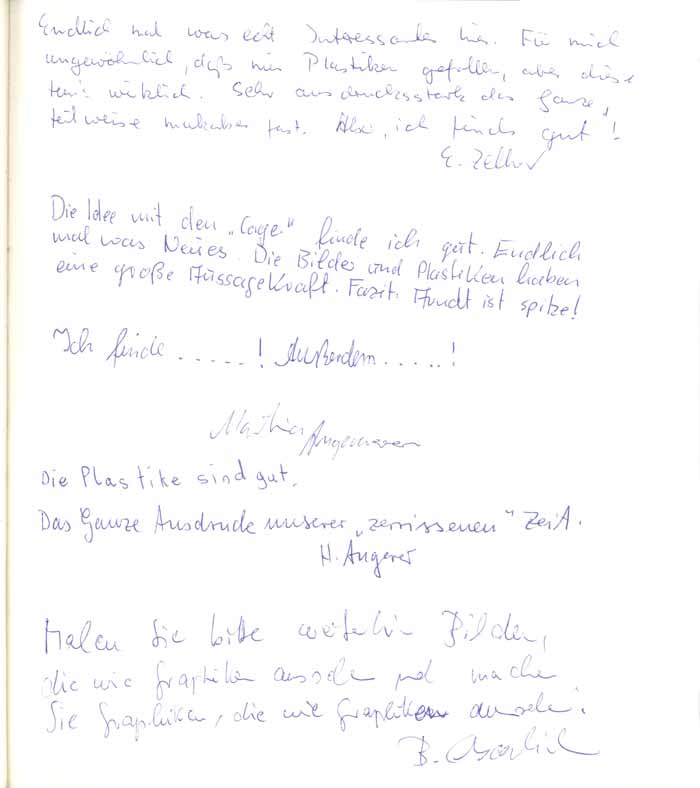 Endlich mal was echt Interessantes hier. Für mich
ungewöhnlich, daß mir Plastiken gefallen, aber diese
tun's wirklich. Sehr ausdrucksstark das Ganze,
teilweise makaber fast. Also, ich find's gut!
E. Zeller
Die Idee mit den „Cage" finde ich gut. Endlich
mal was Neues. Die Bilder und Plastiken haben
eine große Aussagekraft. Fazit: Arndt ist spitze!
Ich finde ......! Außerdem .....!
Mathias
Die Plastike sind gut.
Das Ganze Ausdruck unserer „zerrissenen" Zeit.
H. Angerer
Malen Sie bitte weiterhin Bilder,
die wie Graphiken aussehn und machen
Sie Graphiken, die wie Graphiken aussehn!
B.